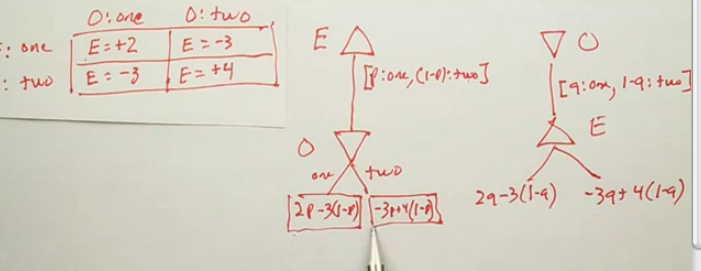 O: one O: two
: one E=+2 E=-3
: two E=-3 E=+4
E
[p:one, (1-p):two]
O
one two
2p-3(1-p) -3p+4(1-p)
O
[q:one, 1-q:two]
E
2q-3(1-q) -3q+4(1-q)